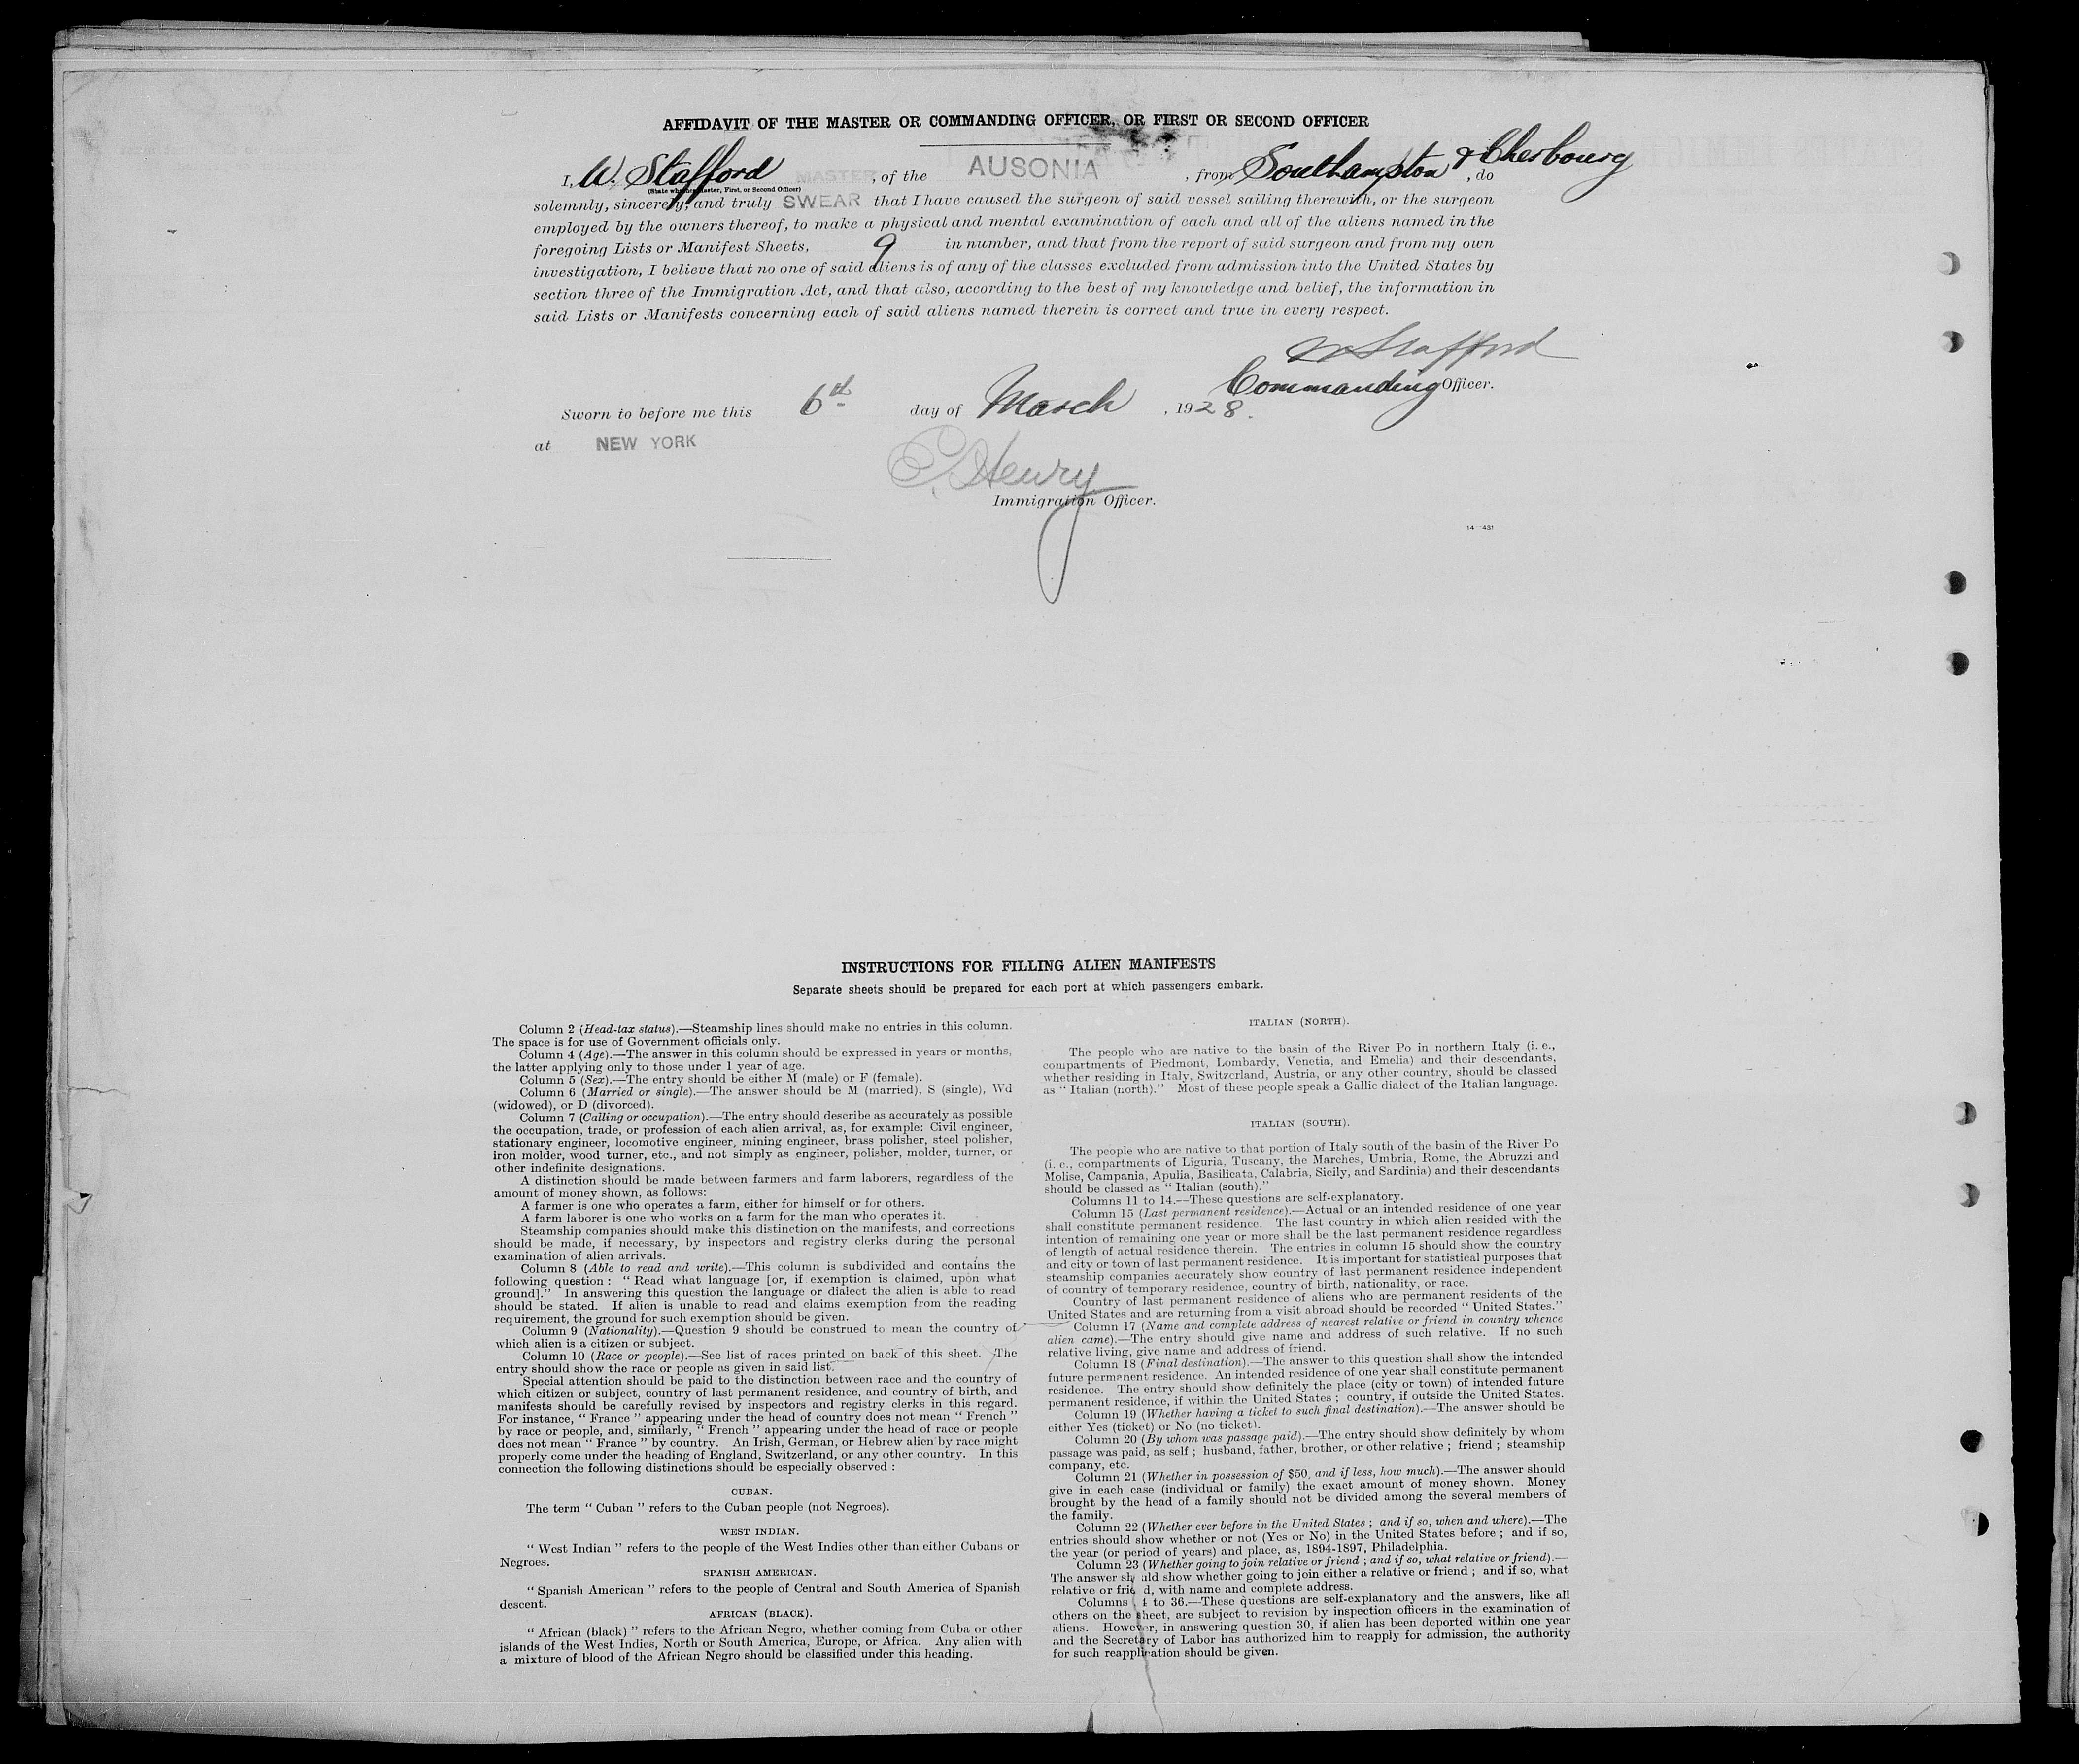 AFFIDAVIT OF THE MASTER OR COMMANDING OFFICER, OR FIRST OR SECOND OFFICER
I, W. Stafford MASTER, of the AUSONIA, from Southampton & Cherbourg, do
(State whether Master, First, or Second Officer)
solemnly, sincerely, and truly SWEAR that I have caused the surgeon of said vessel sailing therewith, or the surgeon
employed by the owners thereof, to make a physical and mental examination of each and all of the aliens named in the
foregoing Lists or Manifest Sheets, 9 in number, and that from the report of said surgeon and from my own
investigation, I believe that no one of said aliens is of any of the classes excluded from admission into the United States by
section three of the Immigration Act, and that also, according to the best of my knowledge and belief, the information in
said Lists or Manifests concerning each of said aliens named therein is correct and true in every respect.
W Stafford
Commanding Officer.
Sworn to before me this 6th day of March, 1928.
at NEW YORK
Henry
Immigration Officer.
14—431
INSTRUCTIONS FOR FILLING ALIEN MANIFESTS
Separate sheets should be prepared for each port at which passengers embark.
Column 2 (Head-tax status).—Steamship lines should make no entries in this column.
The space is for use of Government officials only.
Column 4 (Age).—The answer in this column should be expressed in years or months,
the latter applying only to those under 1 year of age.
Column 5 (Sex).—The entry should be either M (male) or F (female).
Column 6 (Married or single).—The answer should be M (married), S (single), Wd
(widowed), or D (divorced).
Column 7 (Calling or occupation).—The entry should describe as accurately as possible
the occupation, trade, or profession of each alien arrival, as, for example: Civil engineer,
stationary engineer, locomotive engineer, mining engineer, brass polisher, steel polisher,
iron molder, wood turner, etc., and not simply as engineer, polisher, molder, turner, or
other indefinite designations.
A distinction should be made between farmers and farm laborers, regardless of the
amount of money shown, as follows:
A farmer is one who operates a farm, either for himself or for others.
A farm laborer is one who works on a farm for the man who operates it.
Steamship companies should make this distinction on the manifests, and corrections
should be made, if necessary, by inspectors and registry clerks during the personal
examination of alien arrivals.
Column 8 (Able to read and write).—This column is subdivided and contains the
following question: "Read what language [or, if exemption is claimed, upon what
ground]." In answering this question the language or dialect the alien is able to read
should be stated. If alien is unable to read and claims exemption from the reading
requirement, the ground for such exemption should be given.
Column 9 (Nationality).—Question 9 should be construed to mean the country of
which alien is a citizen or subject.
Column 10 (Race or people).—See list of races printed on back of this sheet. The
entry should show the race or people as given in said list.
Special attention should be paid to the distinction between race and the country of
which citizen or subject, country of last permanent residence, and country of birth, and
manifests should be carefully revised by inspectors and registry clerks in this regard.
For instance, "France" appearing under the head of country does not mean "French"
by race or people, and, similarly, "French" appearing under the head of race or people
does not mean "France" by country. An Irish, German, or Hebrew alien by race might
properly come under the heading of England, Switzerland, or any other country. In this
connection the following distinctions should be especially observed:
CUBAN.
The term "Cuban" refers to the Cuban people (not Negroes).
WEST INDIAN.
"West Indian" refers to the people of the West Indies other than either Cubans or
Negroes.
SPANISH AMERICAN.
"Spanish American" refers to the people of Central and South America of Spanish
descent.
AFRICAN (BLACK).
"African (black)" refers to the African Negro, whether coming from Cuba or other
islands of the West Indies, North or South America, Europe, or Africa. Any alien with
a mixture of blood of the African Negro should be classified under this heading.
ITALIAN (NORTH).
The people who are native to the basin of the River Po in northern Italy (i. e.,
compartments of Piedmont, Lombardy, Venetia, and Emelia) and their descendants,
whether residing in Italy, Switzerland, Austria, or any other country, should be classed
as "Italian (north)." Most of these people speak a Gallic dialect of the Italian language.
ITALIAN (SOUTH).
The people who are native to that portion of Italy south of the basin of the River Po
(i. e., compartments of Liguria, Tuscany, the Marches, Umbria, Rome, the Abruzzi and
Molise, Campania, Apulia, Basilicata, Calabria, Sicily, and Sardinia) and their descendants
should be classed as "Italian (south)."
Columns 11 to 14.—These questions are self-explanatory.
Column 15 (Last permanent residence).—Actual or an intended residence of one year
shall constitute permanent residence. The last country in which alien resided with the
intention of remaining one year or more shall be the last permanent residence regardless
of length of actual residence therein. The entries in column 15 should show the country
and city or town of last permanent residence. It is important for statistical purposes that
steamship companies accurately show country of last permanent residence independent
of country of temporary residence, country of birth, nationality, or race.
Country of last permanent residence of aliens who are permanent residents of the
United States and are returning from a visit abroad should be recorded "United States."
Column 17 (Name and complete address of nearest relative or friend in country whence
alien came).—The entry should give name and address of such relative. If no such
relative living, give name and address of friend.
Column 18 (Final destination).—The answer to this question shall show the intended
future permanent residence. An intended residence of one year shall constitute permanent
residence. The entry should show definitely the place (city or town) of intended future
permanent residence, if within the United States; country, if outside the United States.
Column 19 (Whether having a ticket to such final destination).—The answer should be
either Yes (ticket) or No (no ticket).
Column 20 (By whom was passage paid).—The entry should show definitely by whom
passage was paid, as self; husband, father, brother, or other relative; friend; steamship
company, etc.
Column 21 (Whether in possession of $50, and if less, how much).—The answer should
give in each case (individual or family) the exact amount of money shown. Money
brought by the head of a family should not be divided among the several members of
the family.
Column 22 (Whether ever before in the United States; and if so, when and where).—The
entries should show whether or not (Yes or No) in the United States before; and if so,
the year (or period of years) and place, as, 1894-1897, Philadelphia.
Column 23 (Whether going to join relative or friend; and if so, what relative or friend).—
The answer should show whether going to join either a relative or friend; and if so, what
relative or friend, with name and complete address.
Columns 24 to 36.—These questions are self-explanatory and the answers, like all
others on the sheet, are subject to revision by inspection officers in the examination of
aliens. However, in answering question 30, if alien has been deported within one year
and the Secretary of Labor has authorized him to reapply for admission, the authority
for such reapplication should be given.